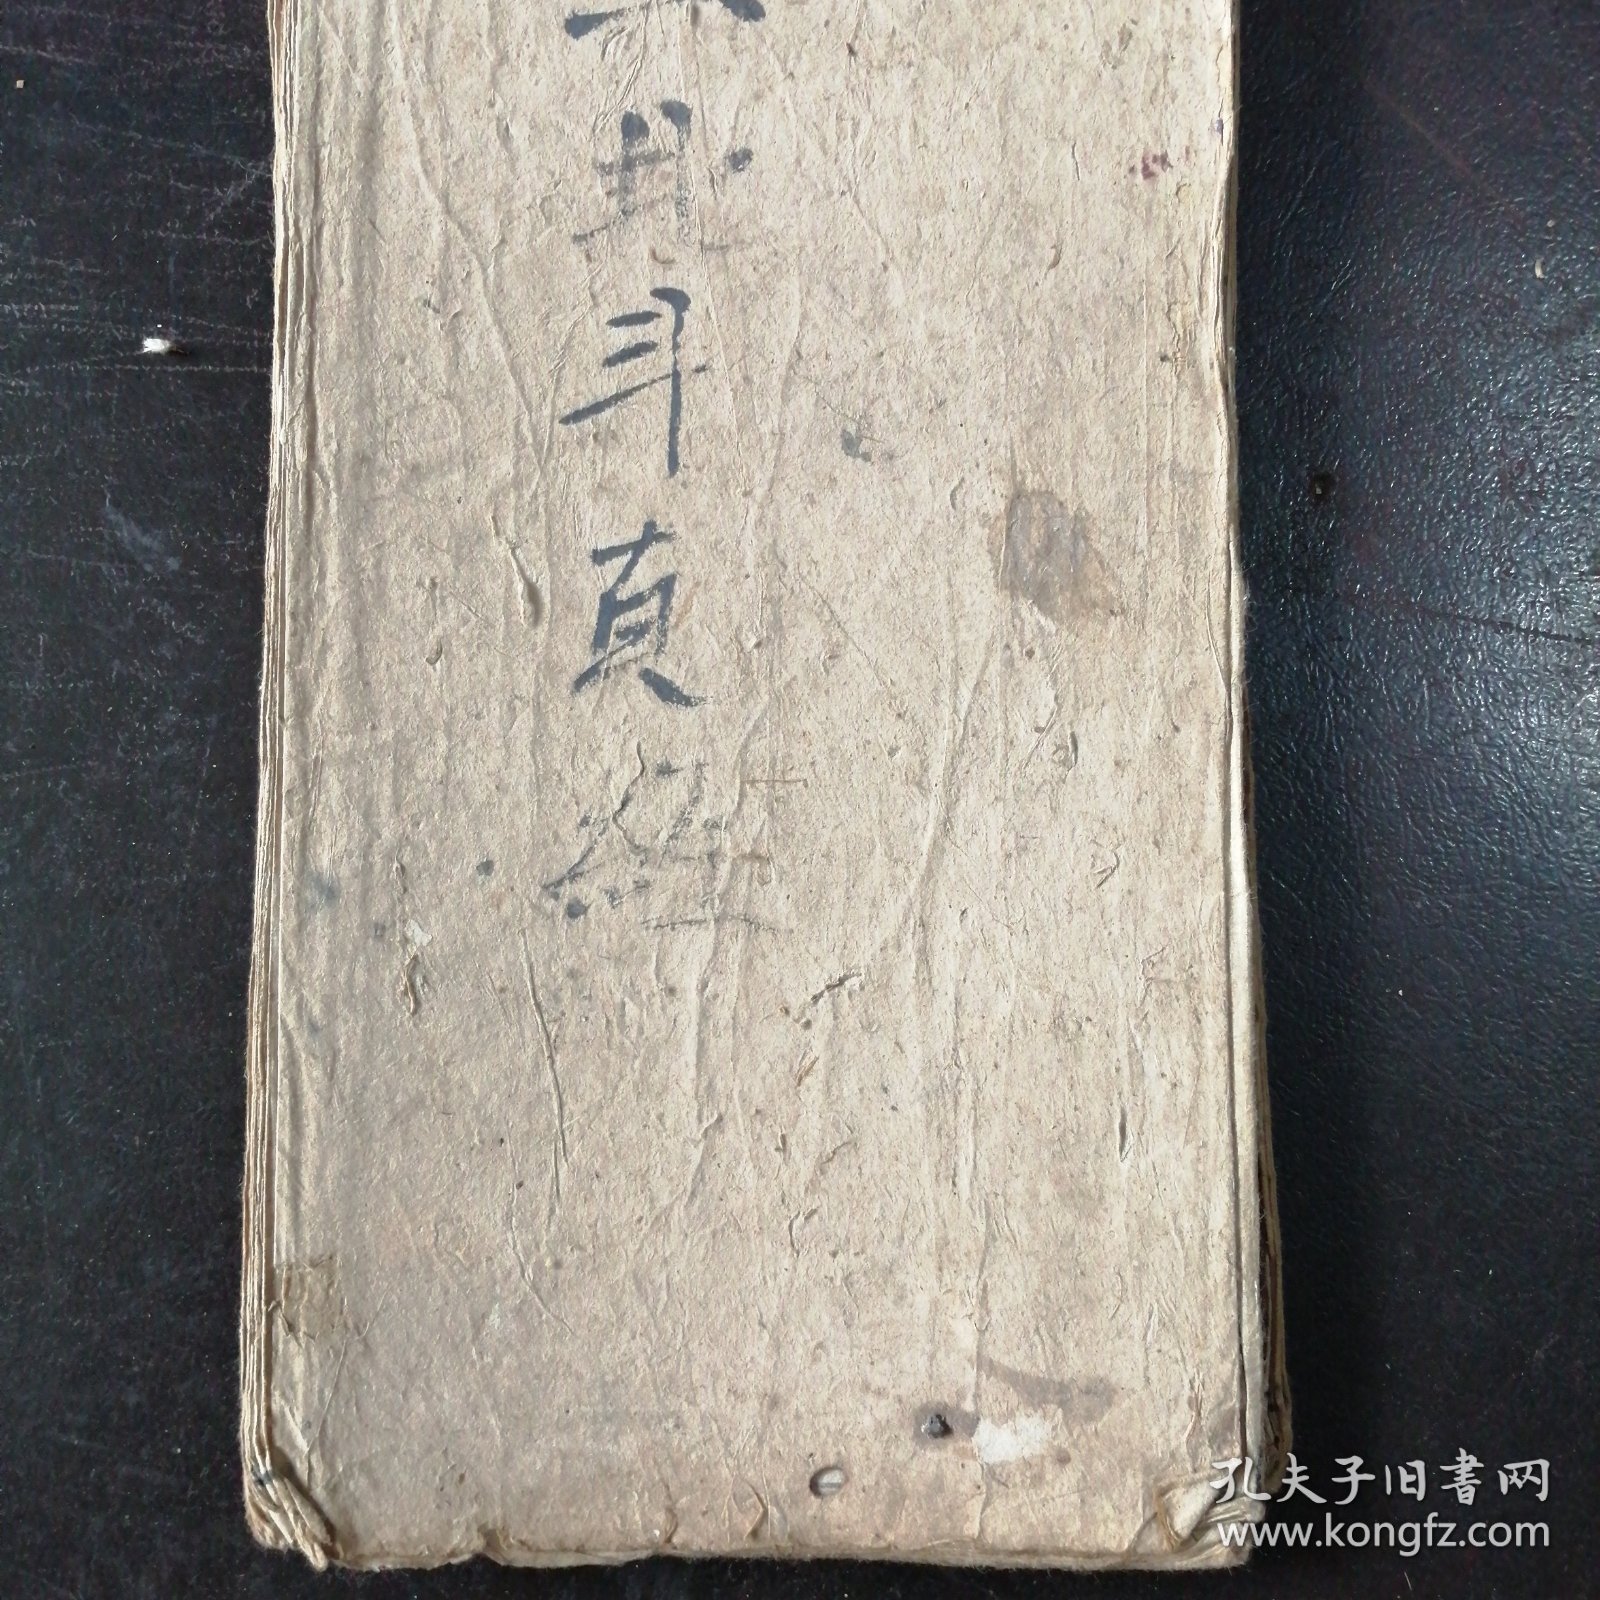 北斗真經
孔夫子旧書网
www.kongfz.com